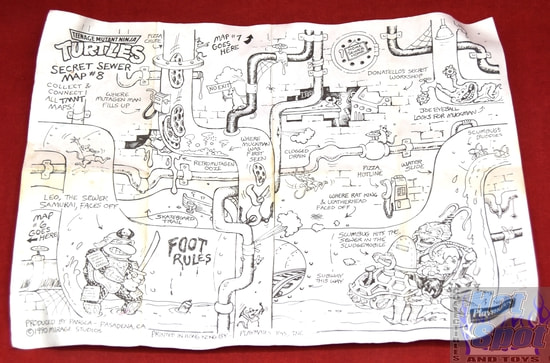 TEENAGE MUTANT NINJA
TURTLES
SECRET SEWER
MAP #8
COLLECT &
CONNECT!
ALL TMNT
MAPS
PIZZA
CHUTE
MAP #7
GOES
HERE
NO EXIT
WHERE
MUTAGEN MAN
FILLS UP
DONATELLO'S SECRET
WORKSHOP
JOE EYEBALL
LOOKS FOR MUCKMAN
WHERE
MUCKMAN
WAS
FIRST
SEEN
CLOGGED
DRAIN
RETROMUTAGEN
OOZE
PIZZA
HOTLINE
WATER
SLIDE
LEO, THE SEWER
SAMURAI, FACES OFF
MAP
GOES
HERE
SKATEBOARD
TRAIL
FOOT
RULES
WHERE RAT KING
& LEATHERHEAD
FACED OFF
SLUMBUG HITS THE
SEWER IN THE
SLUDGEMOBILE
SUBWAY
THIS WAY
PRODUCED BY PANGEA - PASADENA, CA
©1990 MIRAGE STUDIOS
PRINTED IN
PLAYMATES TOYS, INC.
Playmates
AND TOYS